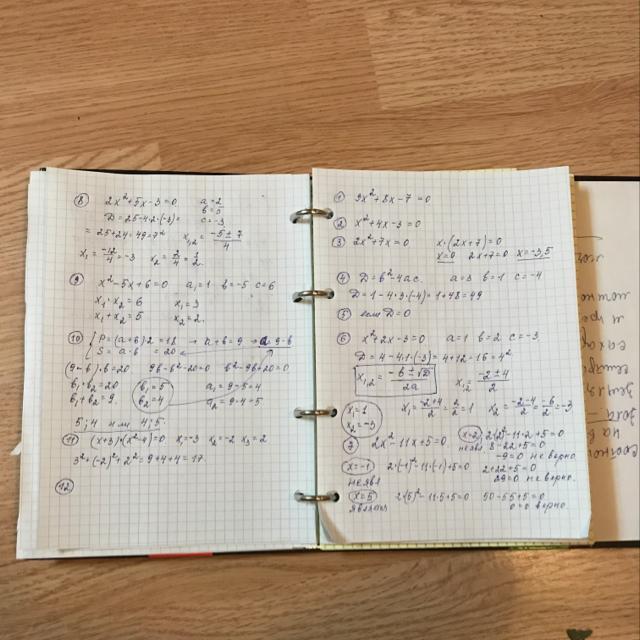 8 2x²+5x-3=0 a=2
b=5
D=25-4·2·(-3)= c=-3
=25+24=49=7² x₁,₂=-5±7/4
x₁=-12/4=-3 x₂=2/4=1/2
9 x²-5x+6=0 a=1 b=-5 c=6
x₁·x₂=6 x₁=3
x₁+x₂=5 x₂=2
10 {P=(a+b)2=18 → a+b=9 → a=9-b
S=a·b=20
(9-b)·b=20 9b-b²-20=0 b²-9b+20=0
b₁b₂=20 b₁=5 a₁=9-5=4
b₁+b₂=9 b₂=4 a₂=9-4=5
5;4 или 4;5
11 (x+3)(x²-4)=0 x₁=-3 x₂=-2 x₃=2
3²+(-2)²+2²=9+4+4=17
12
1 9x²+8x-7=0
2 x²+4x-3=0
3 2x²+7x=0 x·(2x+7)=0
x=0 2x+7=0 x=-3,5
4 D=b²-4ac. a=3 b=1 c=-4
D=1-4·3·(-4)=1+48=49
5 если D=0
6 x²+2x-3=0 a=1 b=2 c=-3
D=4-4·1·(-3)=4+12=16=4²
x₁,₂=-b±√D/2a x₁,₂=-2±4/2
x₁=1 x₁=-2+4/2=2/2=1 x₂=-2-4/2=-6/2=-3
x₂=-3
7 2x²-11x+5=0 x=2 2(2)²-11·2+5=0
8-22+5=0
-9=0 не верно
x=-1 2(-1)²-11·(-1)+5=0 2+22+5=0
не явл 29=0 не верно
x=5 2(5)²-11·5+5=0 50-55+5=0
0=0 верно